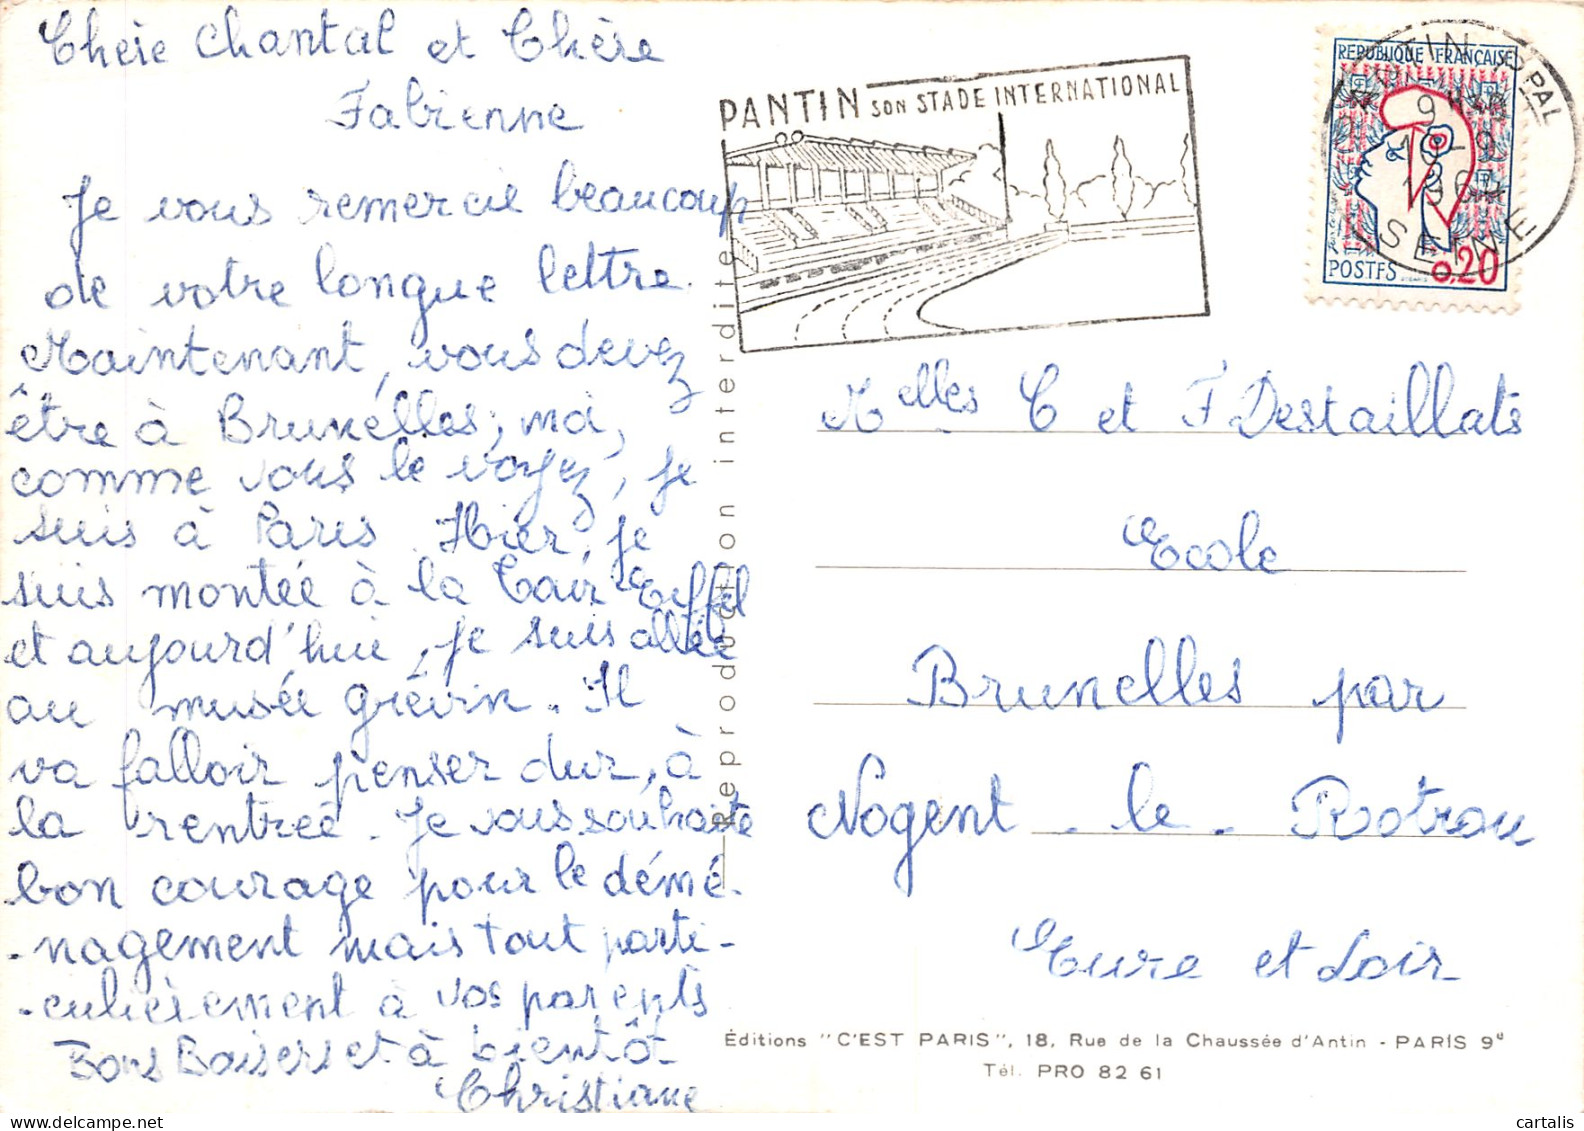 Chère Chantal et Chère
Fabienne
Je vous remercie beaucoup
de votre longue lettre.
Maintenant, vous devez
être à Brunelles, moi,
comme vous le voyez, je
suis à Paris. Hier, je
suis montée à la Tour Eiffel
et aujourd'hui, je suis allée
au musée Grévin. Il
va falloir penser dur, à
la rentrée. Je vous souhaite
bon courage pour le démé-
-nagement mais tout parti-
-culièrement à vos parents
Bons Baisers et à bientôt
Christiane
Reproduction interdite
PANTIN SON STADE INTERNATIONAL
REPUBLIQUE FRANÇAISE
POSTES 0,20
PANTIN PPAL
1964
SEINE
Melles C et F Destaillats
Ecole
Brunelles par
Nogent - le - Rotrou
Eure et Loir
Éditions "C'EST PARIS", 18, Rue de la Chaussée d'Antin - PARIS 9e
Tél. PRO 82 61
cartalis
www.delcampe.net